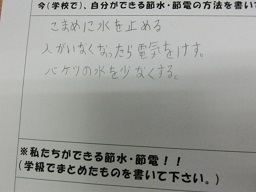 今(学校で)、自分ができる節水・節電の方法を書い
こまめに水を止める
人がいなくなったら電気をけす。
バケツの水を少なくする。
※私たちができる節水・節電！！
(学級でまとめたものを書いて下さい。)